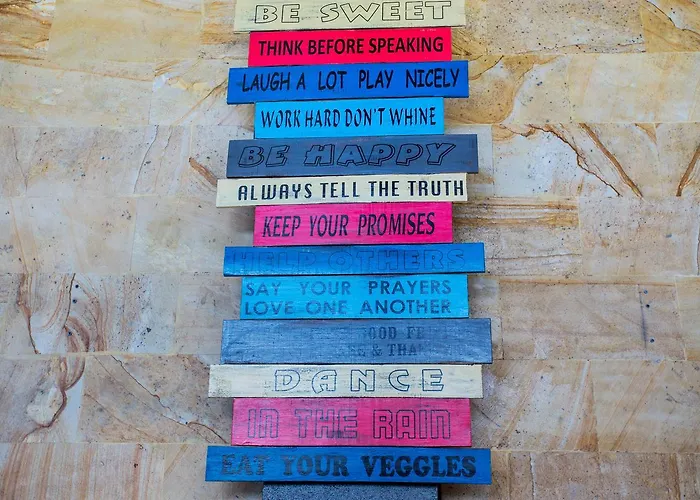 BE SWEET
THINK BEFORE SPEAKING
LAUGH A LOT PLAY NICELY
WORK HARD DON'T WHINE
BE HAPPY
ALWAYS TELL THE TRUTH
KEEP YOUR PROMISES
HELP OTHERS
SAY YOUR PRAYERS
LOVE ONE ANOTHER
OOD FE
& THA
DANCE
IN THE RAIN
EAT YOUR VEGGLES